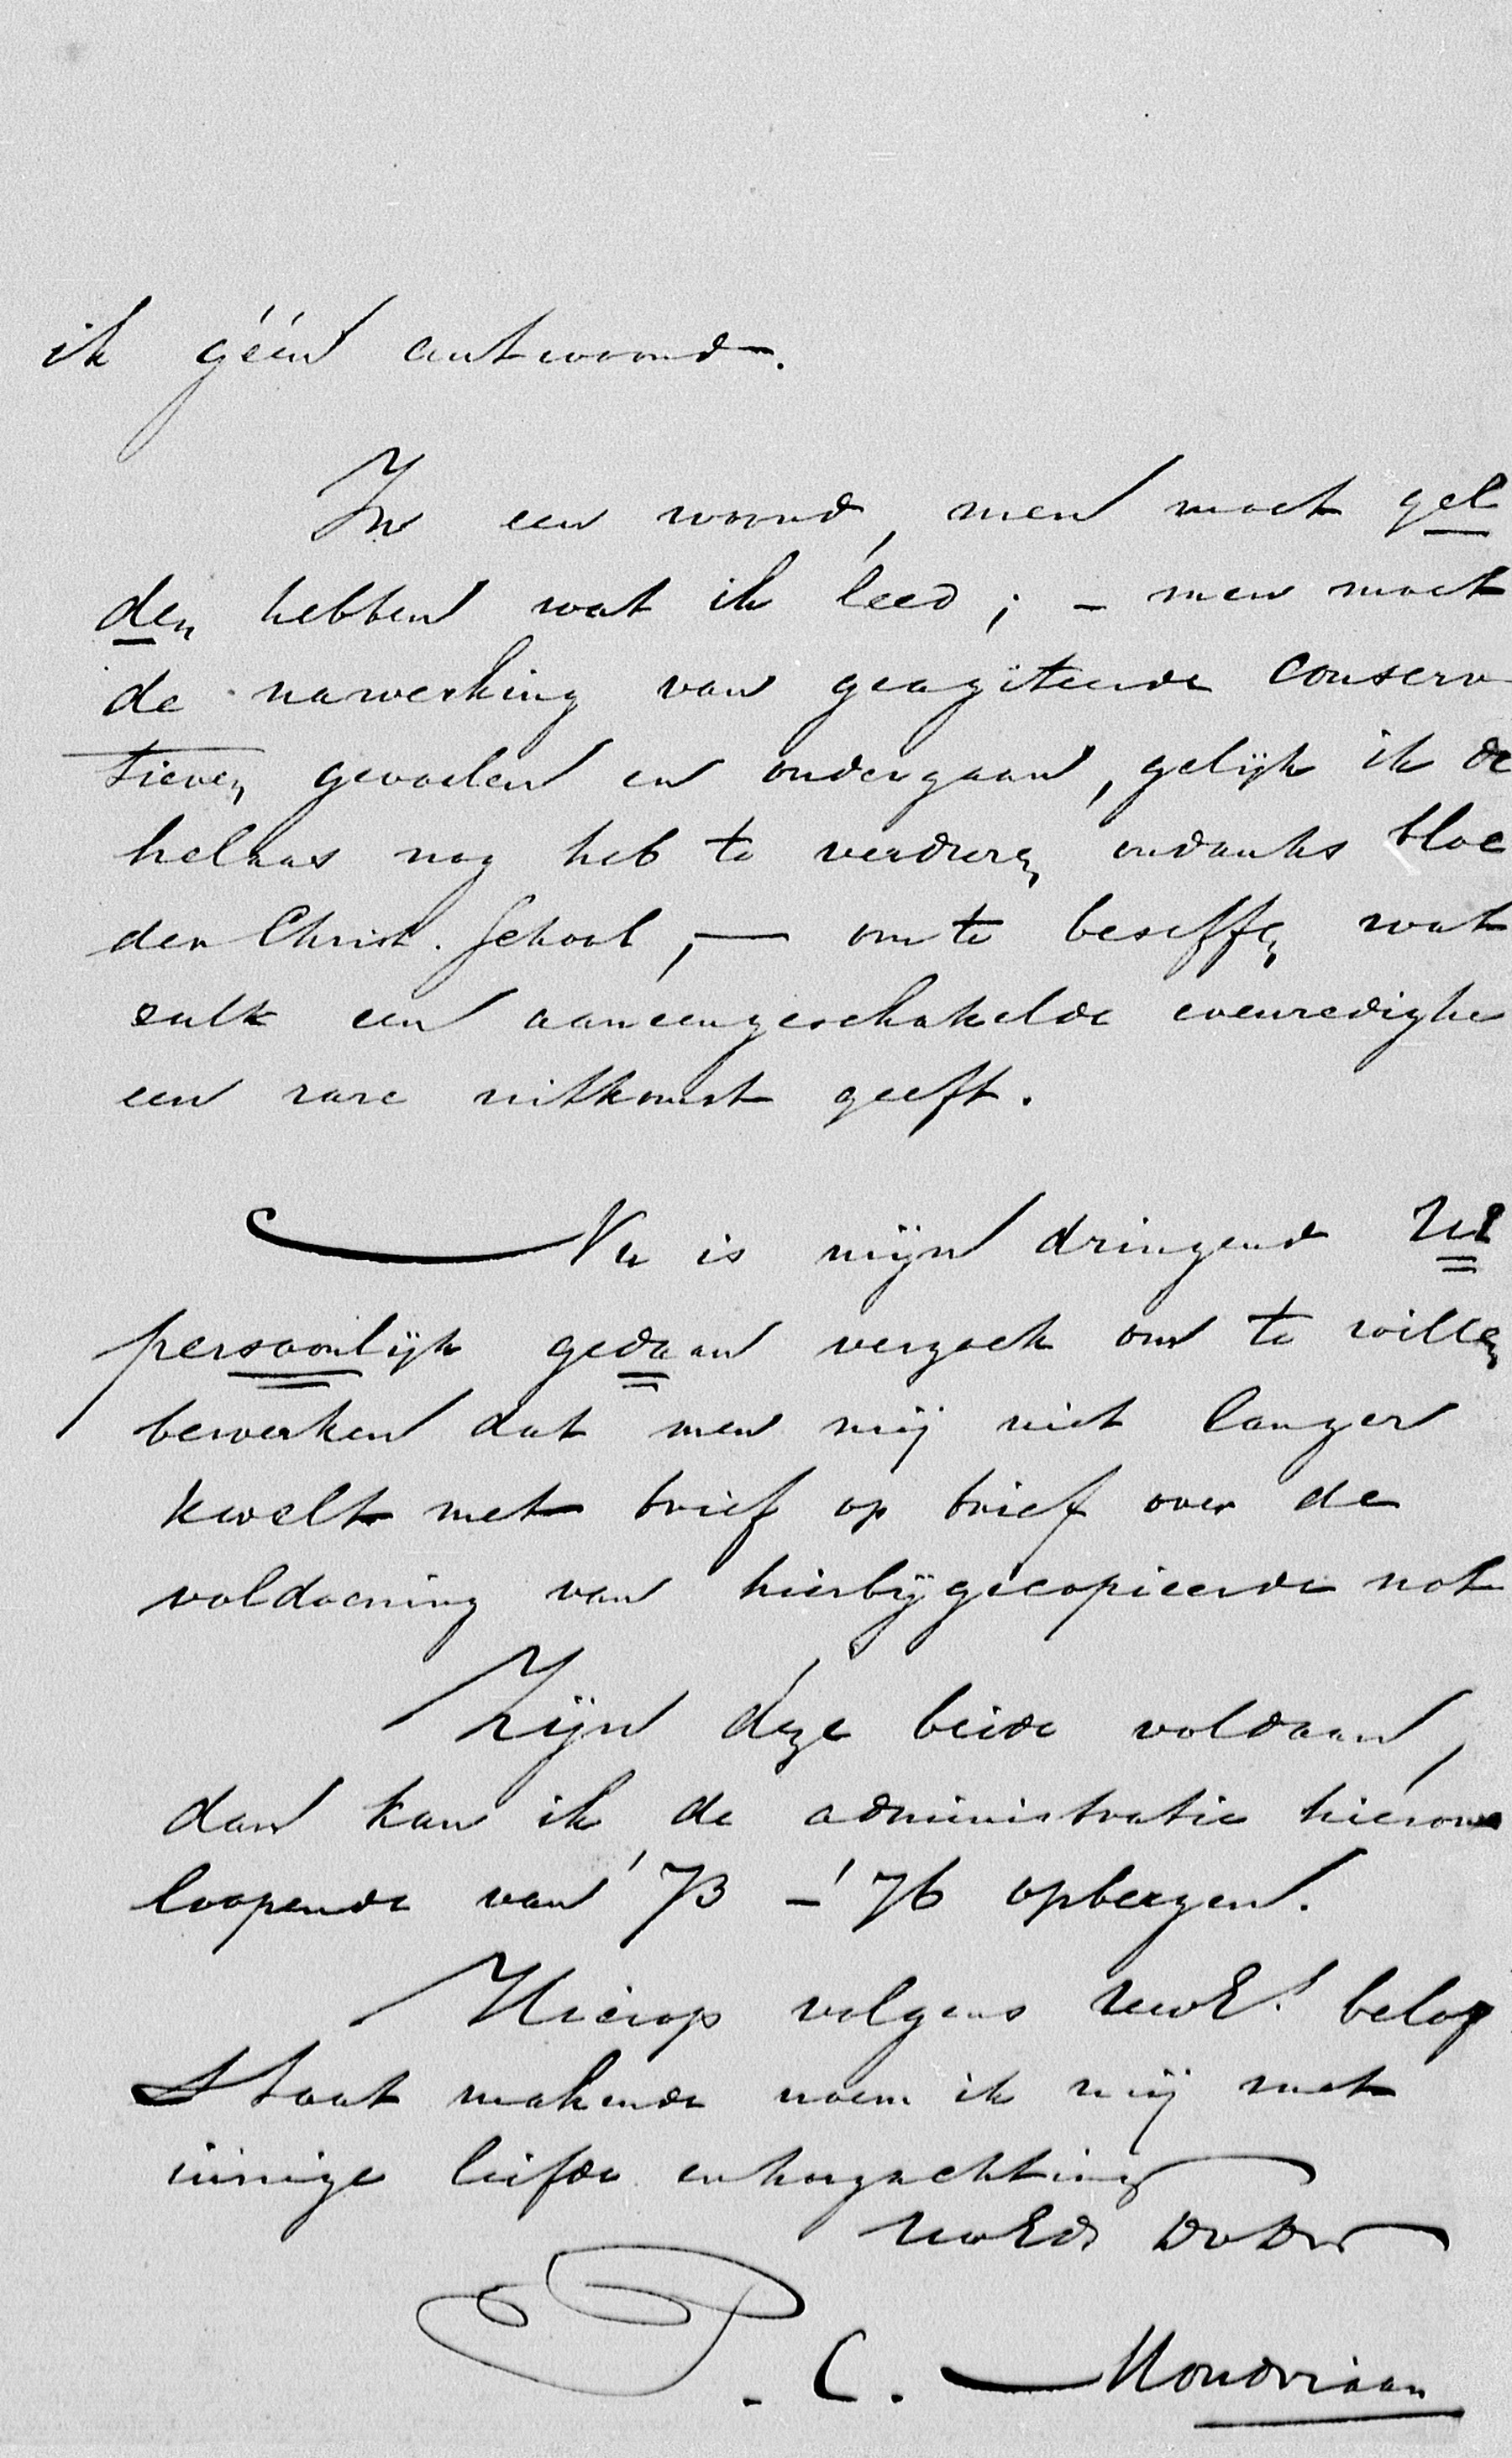 ik géén antwoord.
In een woord, men moet gel
den hebben wat ik leed; – men moet
de nawerking van geagiteerde conserv
tieven gevoelen en ondergaan, gelijk ik de
helaas nog heb te verduren ondanks bloe
den Christ. School, — om te beseffen wat
zulk een aaneengeschakelde evenredighe
een rare uitkomst geeft.
Nu is mijn dringend
persoonlijk gedaan verzoek om te willen
bewerken dat men mij niet langer
kwelt met brief op brief over de
voldoening van hierbijgecopieerde not
Zijn deze beide voldaan,
dan kan ik de administratie hierom
loopende van '73 – '76 opbergen.
Hierop volgens UwE. belof
staat makende noem ik mij met
innige liefde en hoogachting
UwEd DvDr
P. C. Mondriaan